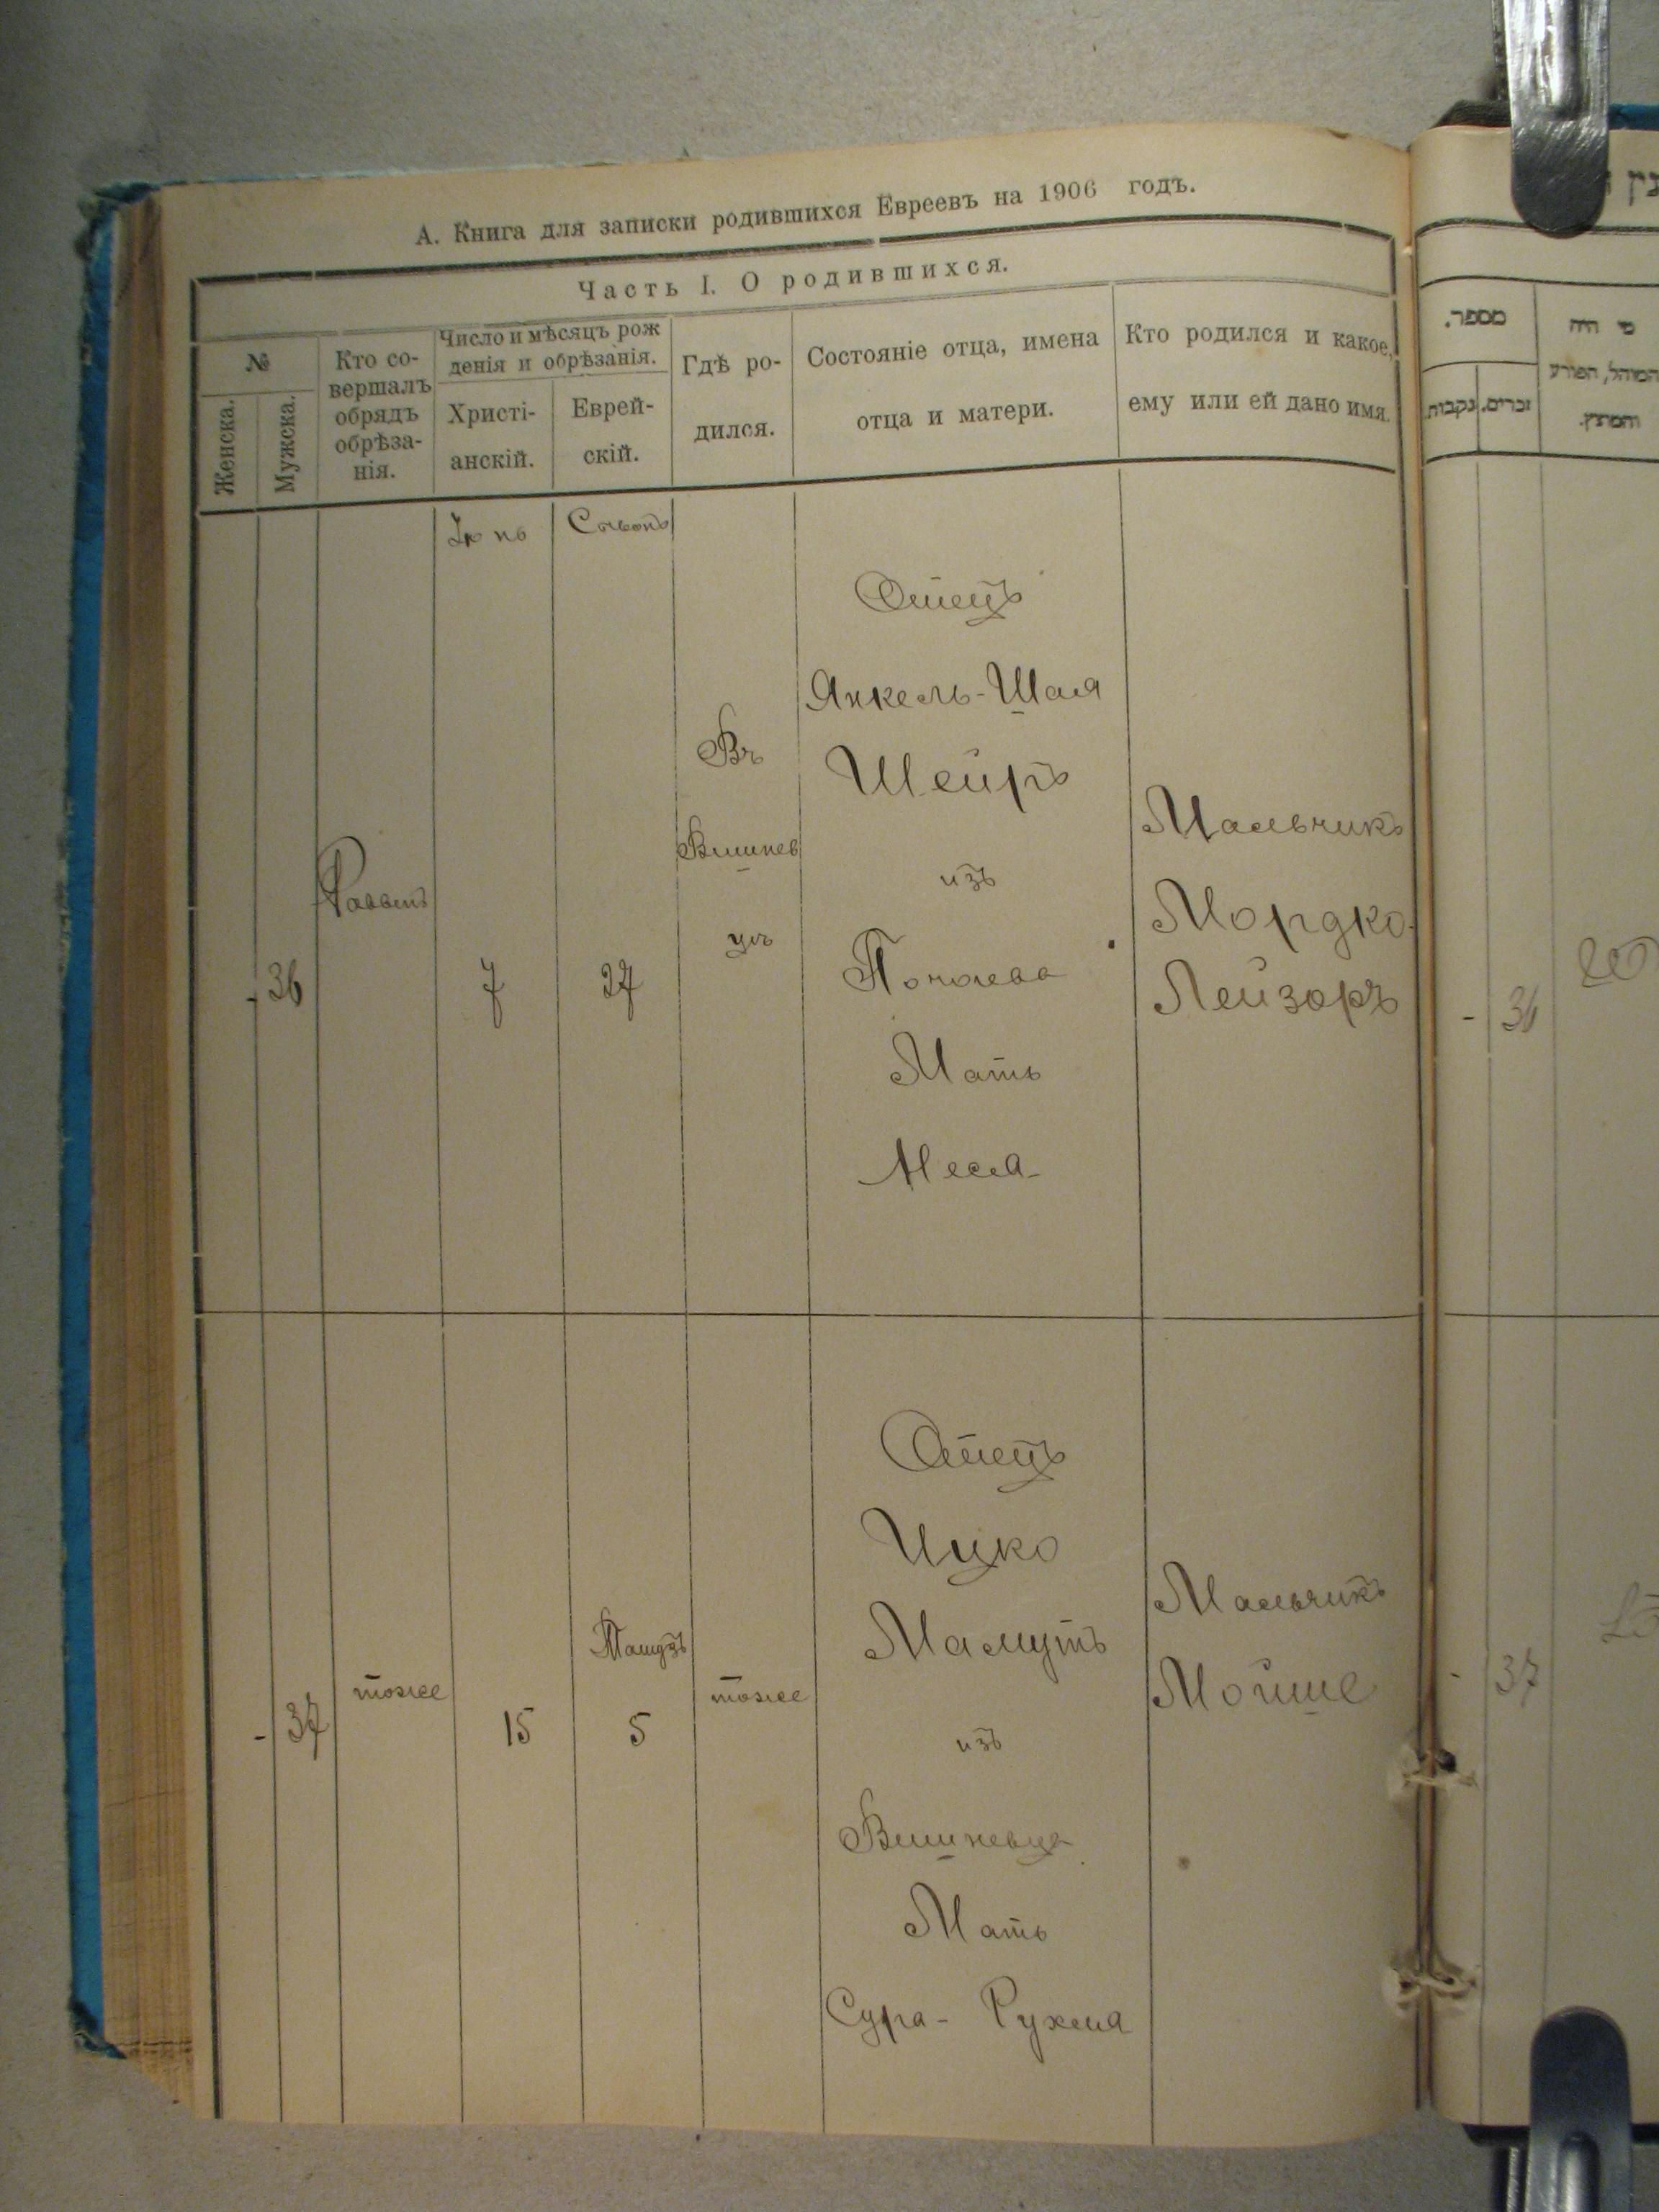 А. Книга для записки родившихся Евреевъ на 1906 годъ.
Часть I. О родившихся.
№
Женска.
Мужска.
Кто со-
вершалъ
обрядъ
обрѣза-
нія.
Число и мѣсяцъ рож
денія и обрѣзанія.
Христі-
анскій.
Еврей-
скій.
Гдѣ ро-
дился.
Состояніе отца, имена
отца и матери.
Кто родился и какое,
ему или ей дано имя.
- 36
7
27
Въ
Вишнев
цѣ
Отецъ
Янкель-Шая
Шейръ
изъ
Почаева
Мать
Несса
Мальчикъ
Мордко-
Лейзоръ
- 37
тоже
15
Тамузъ
5
тоже
Отецъ
Ицко
Мамутъ
изъ
Вишневца
Мать
Сура- Рухля
Мальчикъ
Мойше
מספר.
נקבות.
זכרים.
מי היה
המוהל, הפורע
והמוצץ.
- 36
- 37